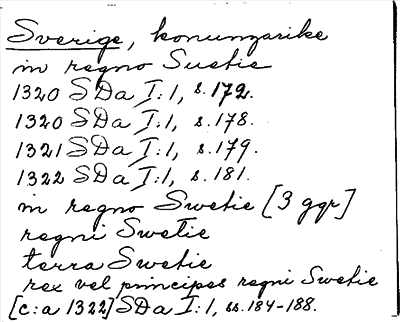 Sverige, konungarike
in regno Suetie
1320 SDa I:1, s. 172.
1320 SDa I:1, s. 178.
1321 SDa I:1, s. 179.
1322 SDa I:1, s. 181.
in regno Swetie [3 ggr]
regni Swetie
terra Swetie
rex vel principes regni Swetie
[c:a 1322] SDa I:1, ss. 184-188.